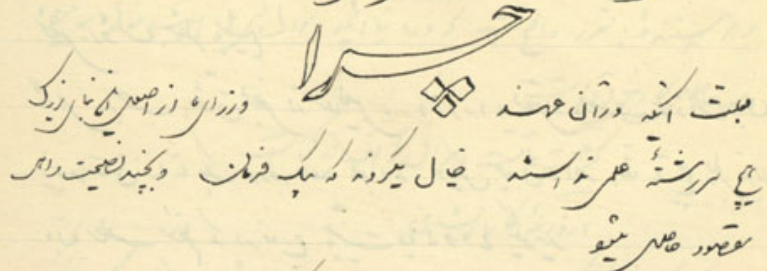 چرا
بعلت آنکه در آن عهد وزرای از اصول
هیچ سررشتهٔ علمی نداشتند خیال میکردند که بیک فرمان و بچند نصیحت
مقصود حاصل میشود